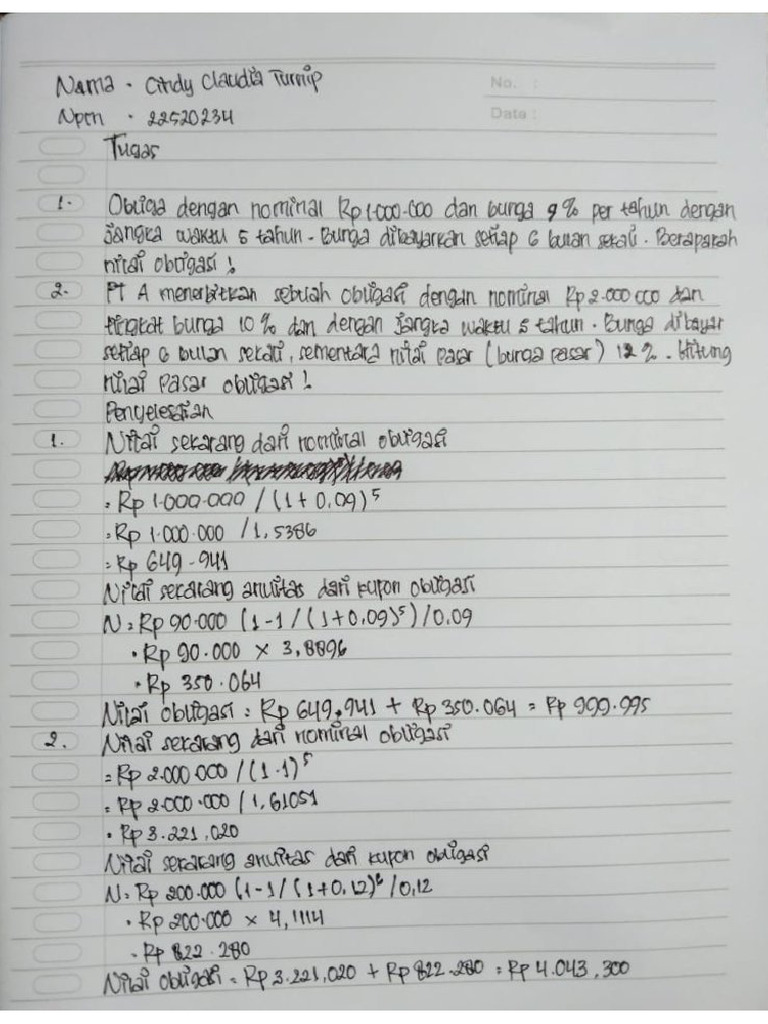 Nama . Cindy Claudia Turnip
No. :
Npm . 22520234
Date :
Tugas
1. Obligasi dengan nominal Rp 1.000.000 dan bunga 9% per tahun dengan
jangka waktu 5 tahun. Bunga dibayarkan setiap 6 bulan sekali. Berapakah
nilai obligasi !
2. PT A menerbitkan sebuah obligasi dengan nominal Rp 2.000.000 dan
tingkat bunga 10% dan dengan jangka waktu 5 tahun. Bunga dibayar
setiap 6 bulan sekali, sementara nilai pasar (bunga pasar) 12%. Hitung
nilai pasar obligasi !
Penyelesaian
1. Nilai sekarang dari nominal obligasi
= Rp 1.000.000 / (1 + 0,09)⁵
= Rp 1.000.000 / 1,5386
= Rp 649.941
Nilai sekarang anuitas dari kupon obligasi
N = Rp 90.000 (1-1 / (1+0,09)⁵) / 0.09
= Rp 90.000 × 3,8896
= Rp 350.064
Nilai obligasi = Rp 649.941 + Rp 350.064 = Rp 999.995
2. Nilai sekarang dari nominal obligasi
= Rp 2.000.000 / (1.1)⁵
= Rp 2.000.000 / 1,61051
= Rp 3.221,020
Nilai sekarang anuitas dari kupon obligasi
N = Rp 200.000 (1-1 / (1+0,12)⁶ / 0,12
= Rp 200.000 × 4,1114
= Rp 822.280
Nilai obligasi = Rp 3.221,020 + Rp 822.280 = Rp 4.043,300